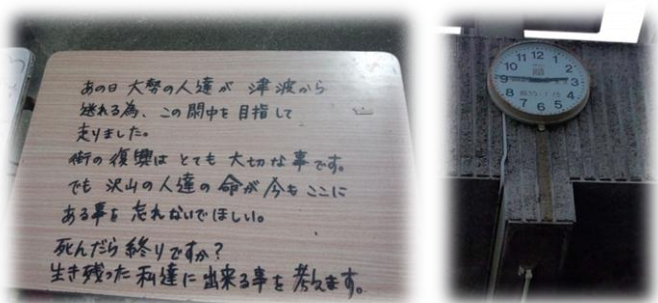 あの日 大勢の人達が 津波から
逃れる為、この閖中を目指して
走りました。
街の復興はとても大切な事です。
でも沢山の人達の命が今もここに
ある事を忘れないでほしい。
死んだら終りですか?
生き残った私達に出来る事を考えます。
12 1 2 3 4 5 6 7 8 9 10 11